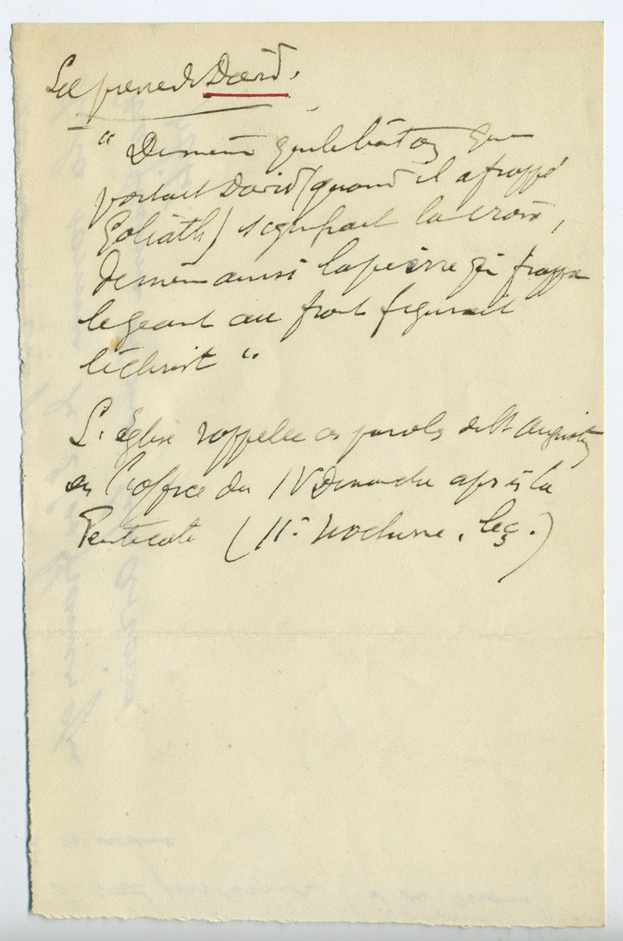 La pierre de David.
" De meme que le bâton que
portait David (quand il a frappé
Goliath) signifiait la croix,
de meme aussi la pierre qui frappa
le geant au front figurait
le christ "
L'église rappelle ces paroles de St Augustin
en l'office du IV Dimanche après la
Pentecote (II e Nocturne, leç.)